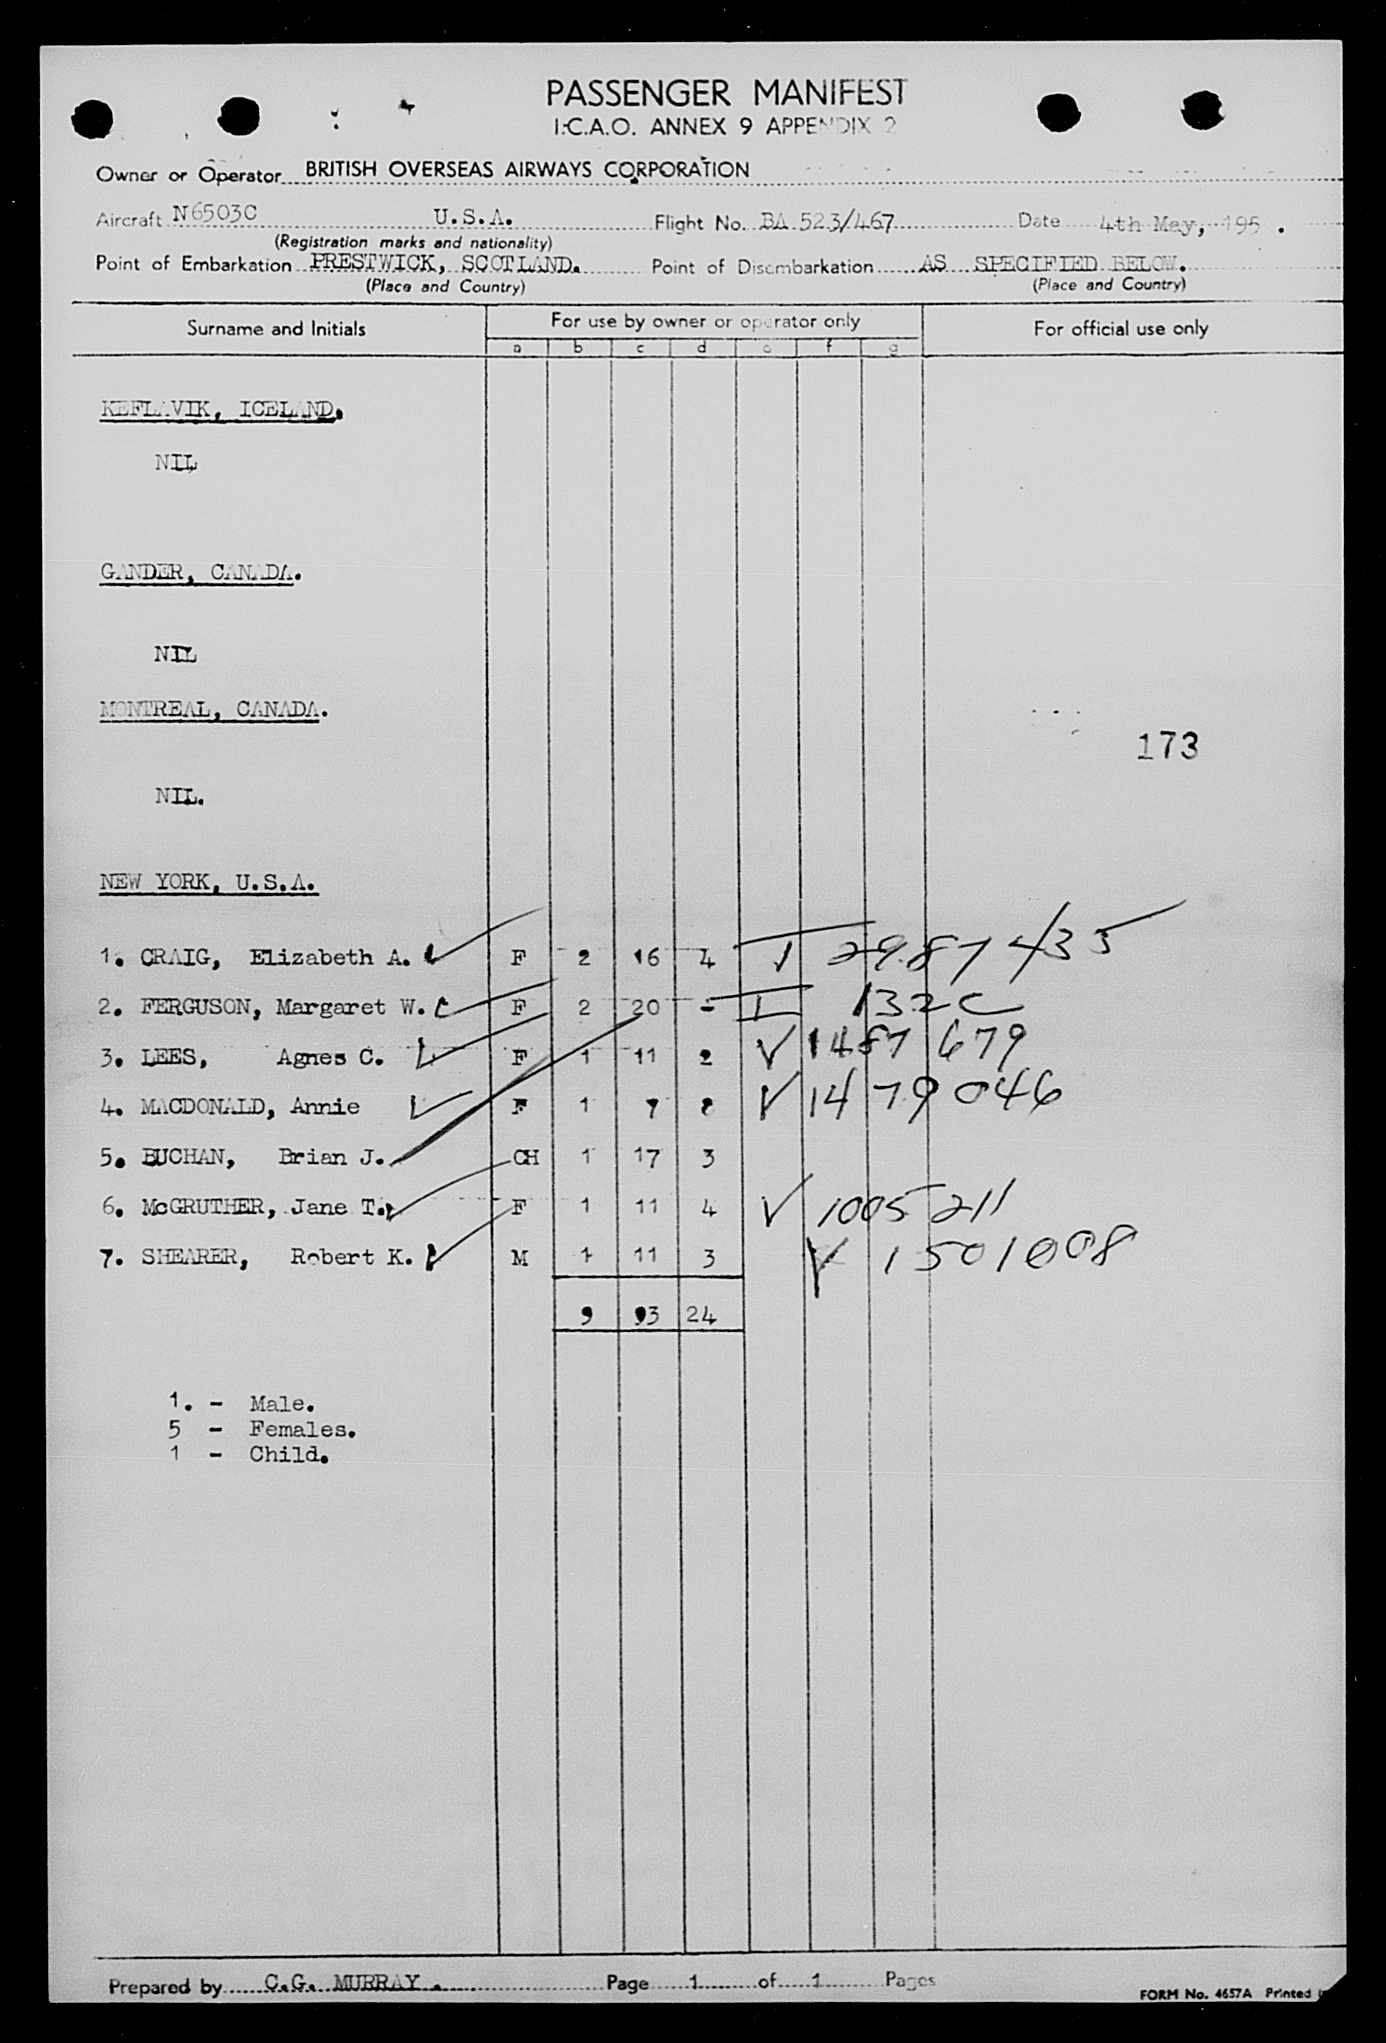 PASSENGER MANIFEST
I.C.A.O. ANNEX 9 APPENDIX 2
Owner or Operator BRITISH OVERSEAS AIRWAYS CORPORATION
Aircraft N6503C U.S.A. Flight No. BA 523/467 Date 4th May, 195 .
(Registration marks and nationality)
Point of Embarkation PRESTWICK, SCOTLAND. Point of Disembarkation AS SPECIFIED BELOW.
(Place and Country) (Place and Country)
Surname and Initials For use by owner or operator only For official use only
a b c d e f g
KEFLAVIK, ICELAND.
NIL
GANDER, CANADA.
NIL
MONTREAL, CANADA.
173
NIL.
NEW YORK, U.S.A.
1. CRAIG, Elizabeth A. F 2 16 4
2. FERGUSON, Margaret W. F 2 20 - 132C
3. LEES, Agnes C. F 1 11 2 1487 679
4. MACDONALD, Annie F 1 7 8 1479046
5. BUCHAN, Brian J. CH 1 17 3
6. McGRUTHER, Jane T. F 1 11 4 1005211
7. SHEARER, Robert K. M 1 11 3 1501008
9 93 24
1. - Male.
5 - Females.
1 - Child.
Prepared by C.G. MURRAY. Page 1 of 1 Pages
FORM No. 4657A Printed